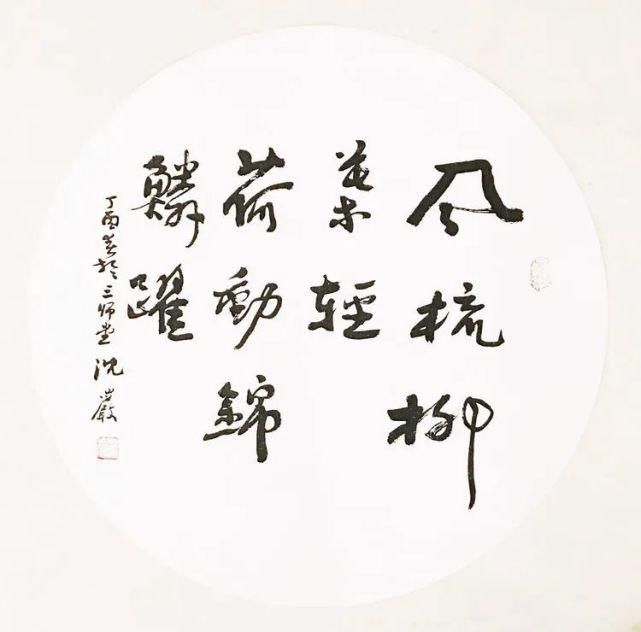 風梳柳
葉輕
荷動錦
鱗躍
丁酉春於三师堂沈巖